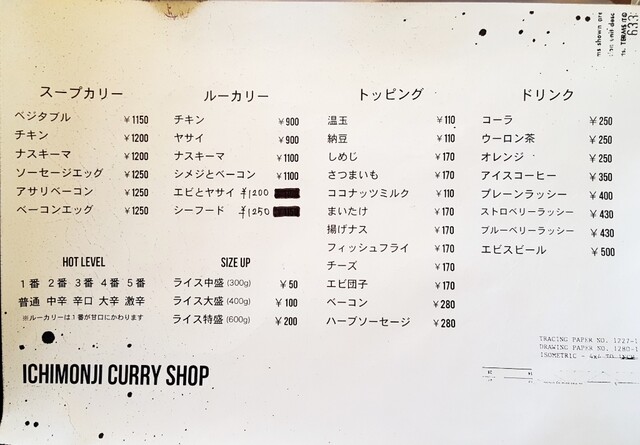 スープカリー
ベジタブル ￥1150
チキン ￥1200
ナスキーマ ￥1200
ソーセージエッグ ￥1250
アサリベーコン ￥1250
ベーコンエッグ ￥1250
ルーカリー
チキン ￥900
ヤサイ ￥900
ナスキーマ ￥1100
シメジとベーコン ￥1100
エビとヤサイ ￥1200
シーフード ￥1250
トッピング
温玉 ￥110
納豆 ￥110
しめじ ￥170
さつまいも ￥170
ココナッツミルク ￥110
まいたけ ￥170
揚げナス ￥170
フィッシュフライ ￥170
チーズ ￥170
エビ団子 ￥170
ベーコン ￥280
ハーブソーセージ ￥280
ドリンク
コーラ ￥250
ウーロン茶 ￥250
オレンジ ￥250
アイスコーヒー ￥350
プレーンラッシー ￥400
ストロベリーラッシー ￥430
ブルーベリーラッシー ￥430
ヱビスビール ￥500
HOT LEVEL
1番 2番 3番 4番 5番
普通 中辛 辛口 大辛 激辛
※ルーカリーは1番が甘口にかわります
SIZE UP
ライス中盛 (300g) ￥50
ライス大盛 (400g) ￥100
ライス特盛 (600g) ￥200
ICHIMONJI CURRY SHOP
TRACING PAPER NO. 1227-1
DRAWING PAPER NO. 1280-1
ISOMETRIC -
ms shown are
unit desc
633